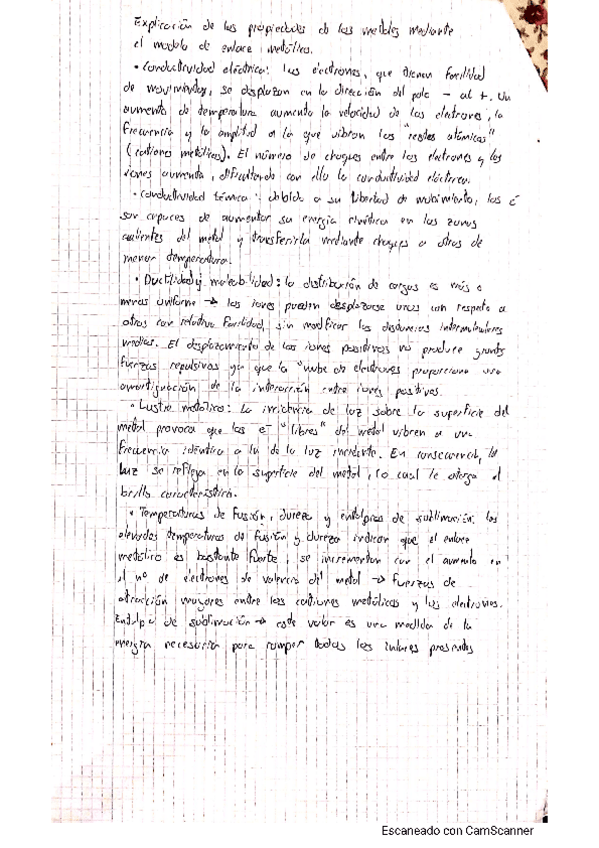 Explicación de las propiedades de los metales mediante
el modelo de enlace metálico.
• Conductividad eléctrica: los electrones, que tienen facilidad
de movimientos, se desplazan en la dirección del polo - al +. Un
aumento de temperatura aumenta la velocidad de los electrones, la
frecuencia y la amplitud a la que vibran los "restos atómicos"
(cationes metálicos). El número de choques entre los electrones y los
iones aumenta, dificultando con ello la conductividad eléctrica.
• Conductividad térmica: debido a su libertad de movimiento, los e⁻
son capaces de aumentar su energía cinética en las zonas
calientes del metal y transferirla mediante choques a otras de
menor temperatura.
• Ductilidad y maleabilidad: la distribución de cargas es más o
menos uniforme → los iones pueden desplazarse unos con respecto a
otros con relativa facilidad, sin modificar las distancias intermoleculares
medias. El desplazamiento de los iones positivos no produce grandes
fuerzas repulsivas ya que la "nube de electrones proporciona una
amortiguación de la interacción entre iones positivos.
• Lustre metálico: la incidencia de luz sobre la superficie del
metal provoca que los e⁻ "libres" del metal vibren a una
frecuencia idéntica a la de la luz incidente. En consecuencia, la
luz se refleja en la superficie del metal, lo cual le otorga el
brillo característico.
• Temperaturas de fusión, dureza y entalpías de sublimación: las
elevadas temperaturas de fusión y dureza indican que el enlace
metálico es bastante fuerte, se incrementan con el aumento en
el nº de electrones de valencia del metal → fuerzas de
atracción mayores entre los cationes metálicos y los electrones.
Entalpía de sublimación → este valor es una medida de la
energía necesaria para romper todos los enlaces presentes
Escaneado con CamScanner